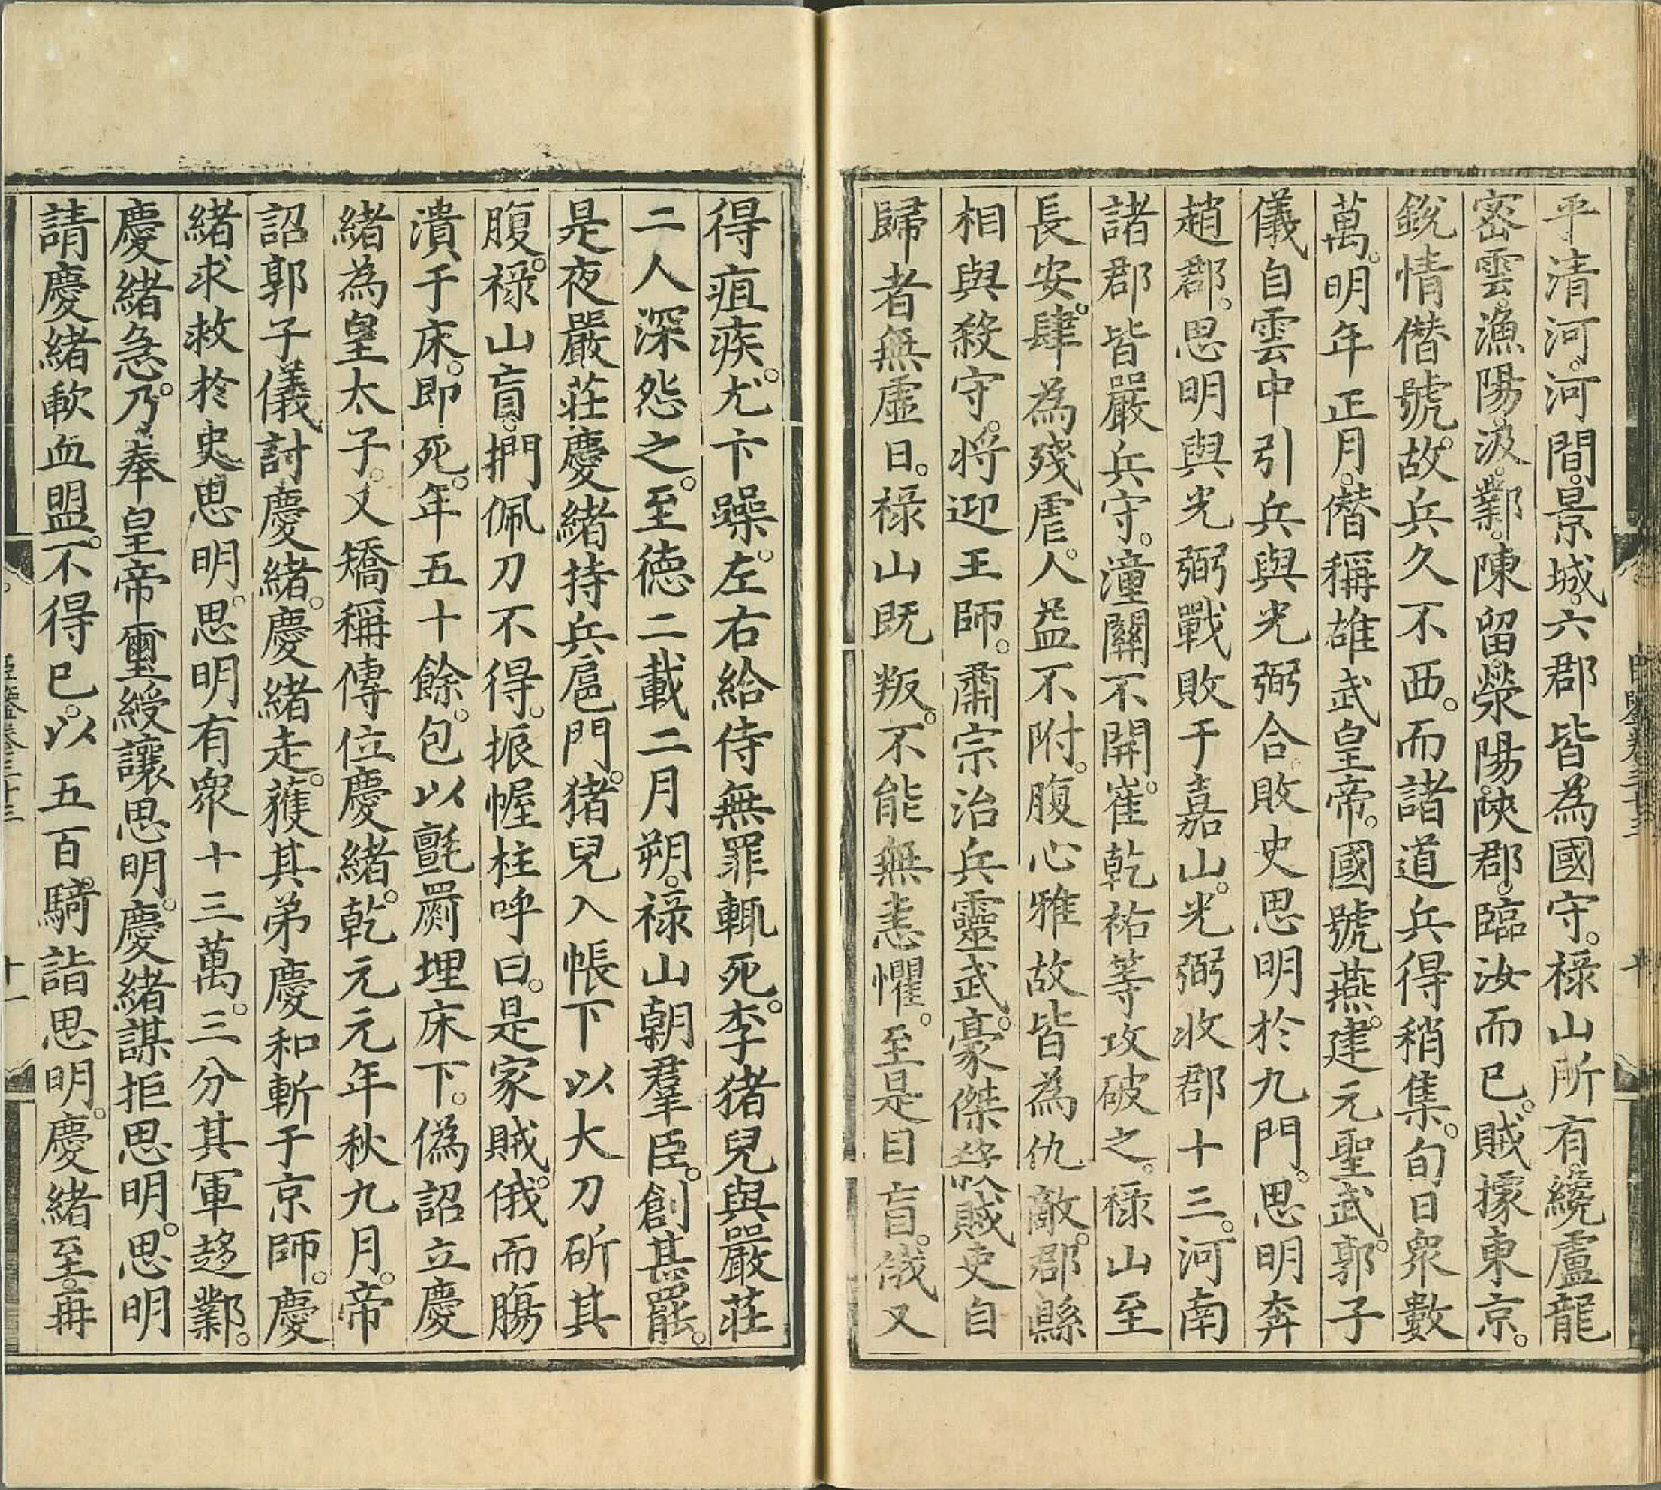 平清河。河間。景城。六郡皆為國守。祿山所有。纔盧龍
密雲。漁陽。汲。鄴。陳留。滎陽。陝郡。臨汝而已。賊據東京。
銳情僭號。故兵久不西。而諸道兵得稍集。旬日眾數
萬。明年正月。僭稱雄武皇帝。國號燕。建元聖武。郭子
儀自雲中引兵與光弼合敗史思明於九門。思明奔
趙郡。思明與光弼戰敗于嘉山。光弼收郡十三。河南
諸郡皆嚴兵守。潼關不開。崔乾祐等攻破之。祿山至
長安。肆為殘虐。人益不附。腹心雅故皆為仇敵。郡縣
相與殺守。將迎王師。肅宗治兵靈武。豪傑殺賊吏自
歸者無虛日。祿山既叛。不能無恚懼。至是目盲。俄又
得疽疾。尤卞躁。左右給侍無罪輒死。李猪兒與嚴莊
二人深怨之。至德二載二月朔。祿山朝羣臣。創甚罷。
是夜嚴莊慶緒持兵扈門。猪兒入帳下以大刀斫其
腹。祿山盲。捫佩刀不得。振幄柱呼曰。是家賊。俄而腸
潰于床。即死。年五十餘。包以氈罽埋床下。偽詔立慶
緒為皇太子。又矯稱傳位慶緒。乾元元年秋九月。帝
詔郭子儀討慶緒。慶緒走。獲其弟慶和斬于京師。慶
緒求救於史思明。思明有眾十三萬。三分其軍趍鄴。
慶緒急。乃奉皇帝璽綬讓思明。慶緒謀拒思明。思明
請慶緒歃血盟。不得已。以五百騎詣思明。慶緒至。再
十一